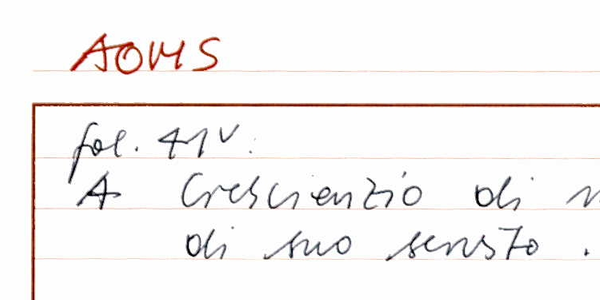 AOMS
fol. 41v.
A Crescienzio di
di suo